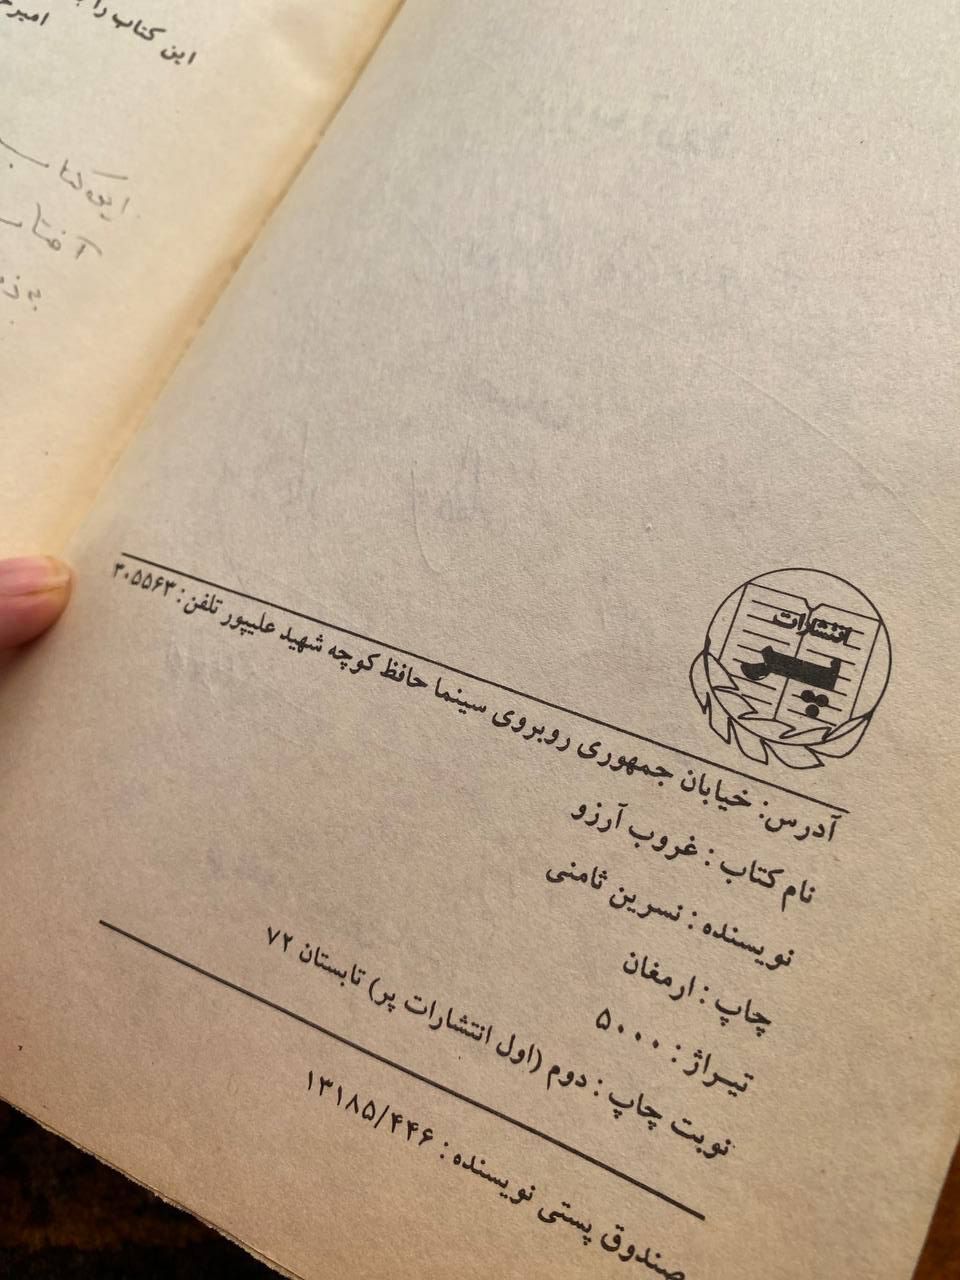 این کتاب را
این کتاب
آفتاب
انتشارات
پر
آدرس: خیابان جمهوری روبروی سینما حافظ کوچه شهید علیپور تلفن: ۳۰۵۵۶۳
نام کتاب : غروب آرزو
نویسنده : نسرین ثامنی
چاپ : ارمغان
تیـراژ : ۵۰۰۰
نوبت چاپ : دوم (اول انتشارات پر) تابستان ۷۲
صندوق پستی نویسنده : ۱۳۱۸۵/۴۴۶